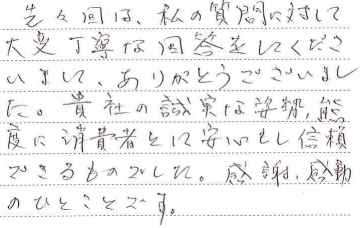 先々回は、私の質問に対して
大変丁寧な回答をしてくださ
いまして、ありがとうございまし
た。貴社の誠実な姿勢、態
度に消費者として安心もし信頼
できるものでした。感謝、感動
のひとことです。